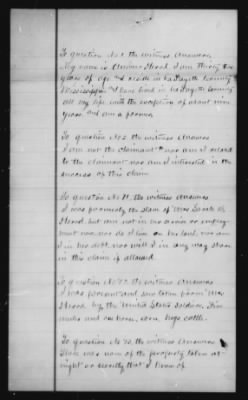 To question No 1 the witness answers
My name is Anselm Wood. I am thirty two
years of age & reside in Lafayette County
Mississippi & have lived in Lafayette County
all my life with the exception of about nine
years and am a farmer.
To question No 2 the witness answers
I am not the claimant nor am I related
to the claimant nor am I interested in the
success of this claim.
To question No 71 the witness answers
I was formerly the slave of Mrs Sarah
Wood but am not in her service or employ-
ment now nor do I live on her land, nor am
I in her debt, nor will I in any way share
in this claim if allowed.
To question No 72 the witness answers
I was present and saw taken from Mrs
Wood by the United States soldiers, Five
mules and one horse, corn, hogs cattle.
To question No 73 the witness answers
There was none of the property taken at
night or secretly that I know of